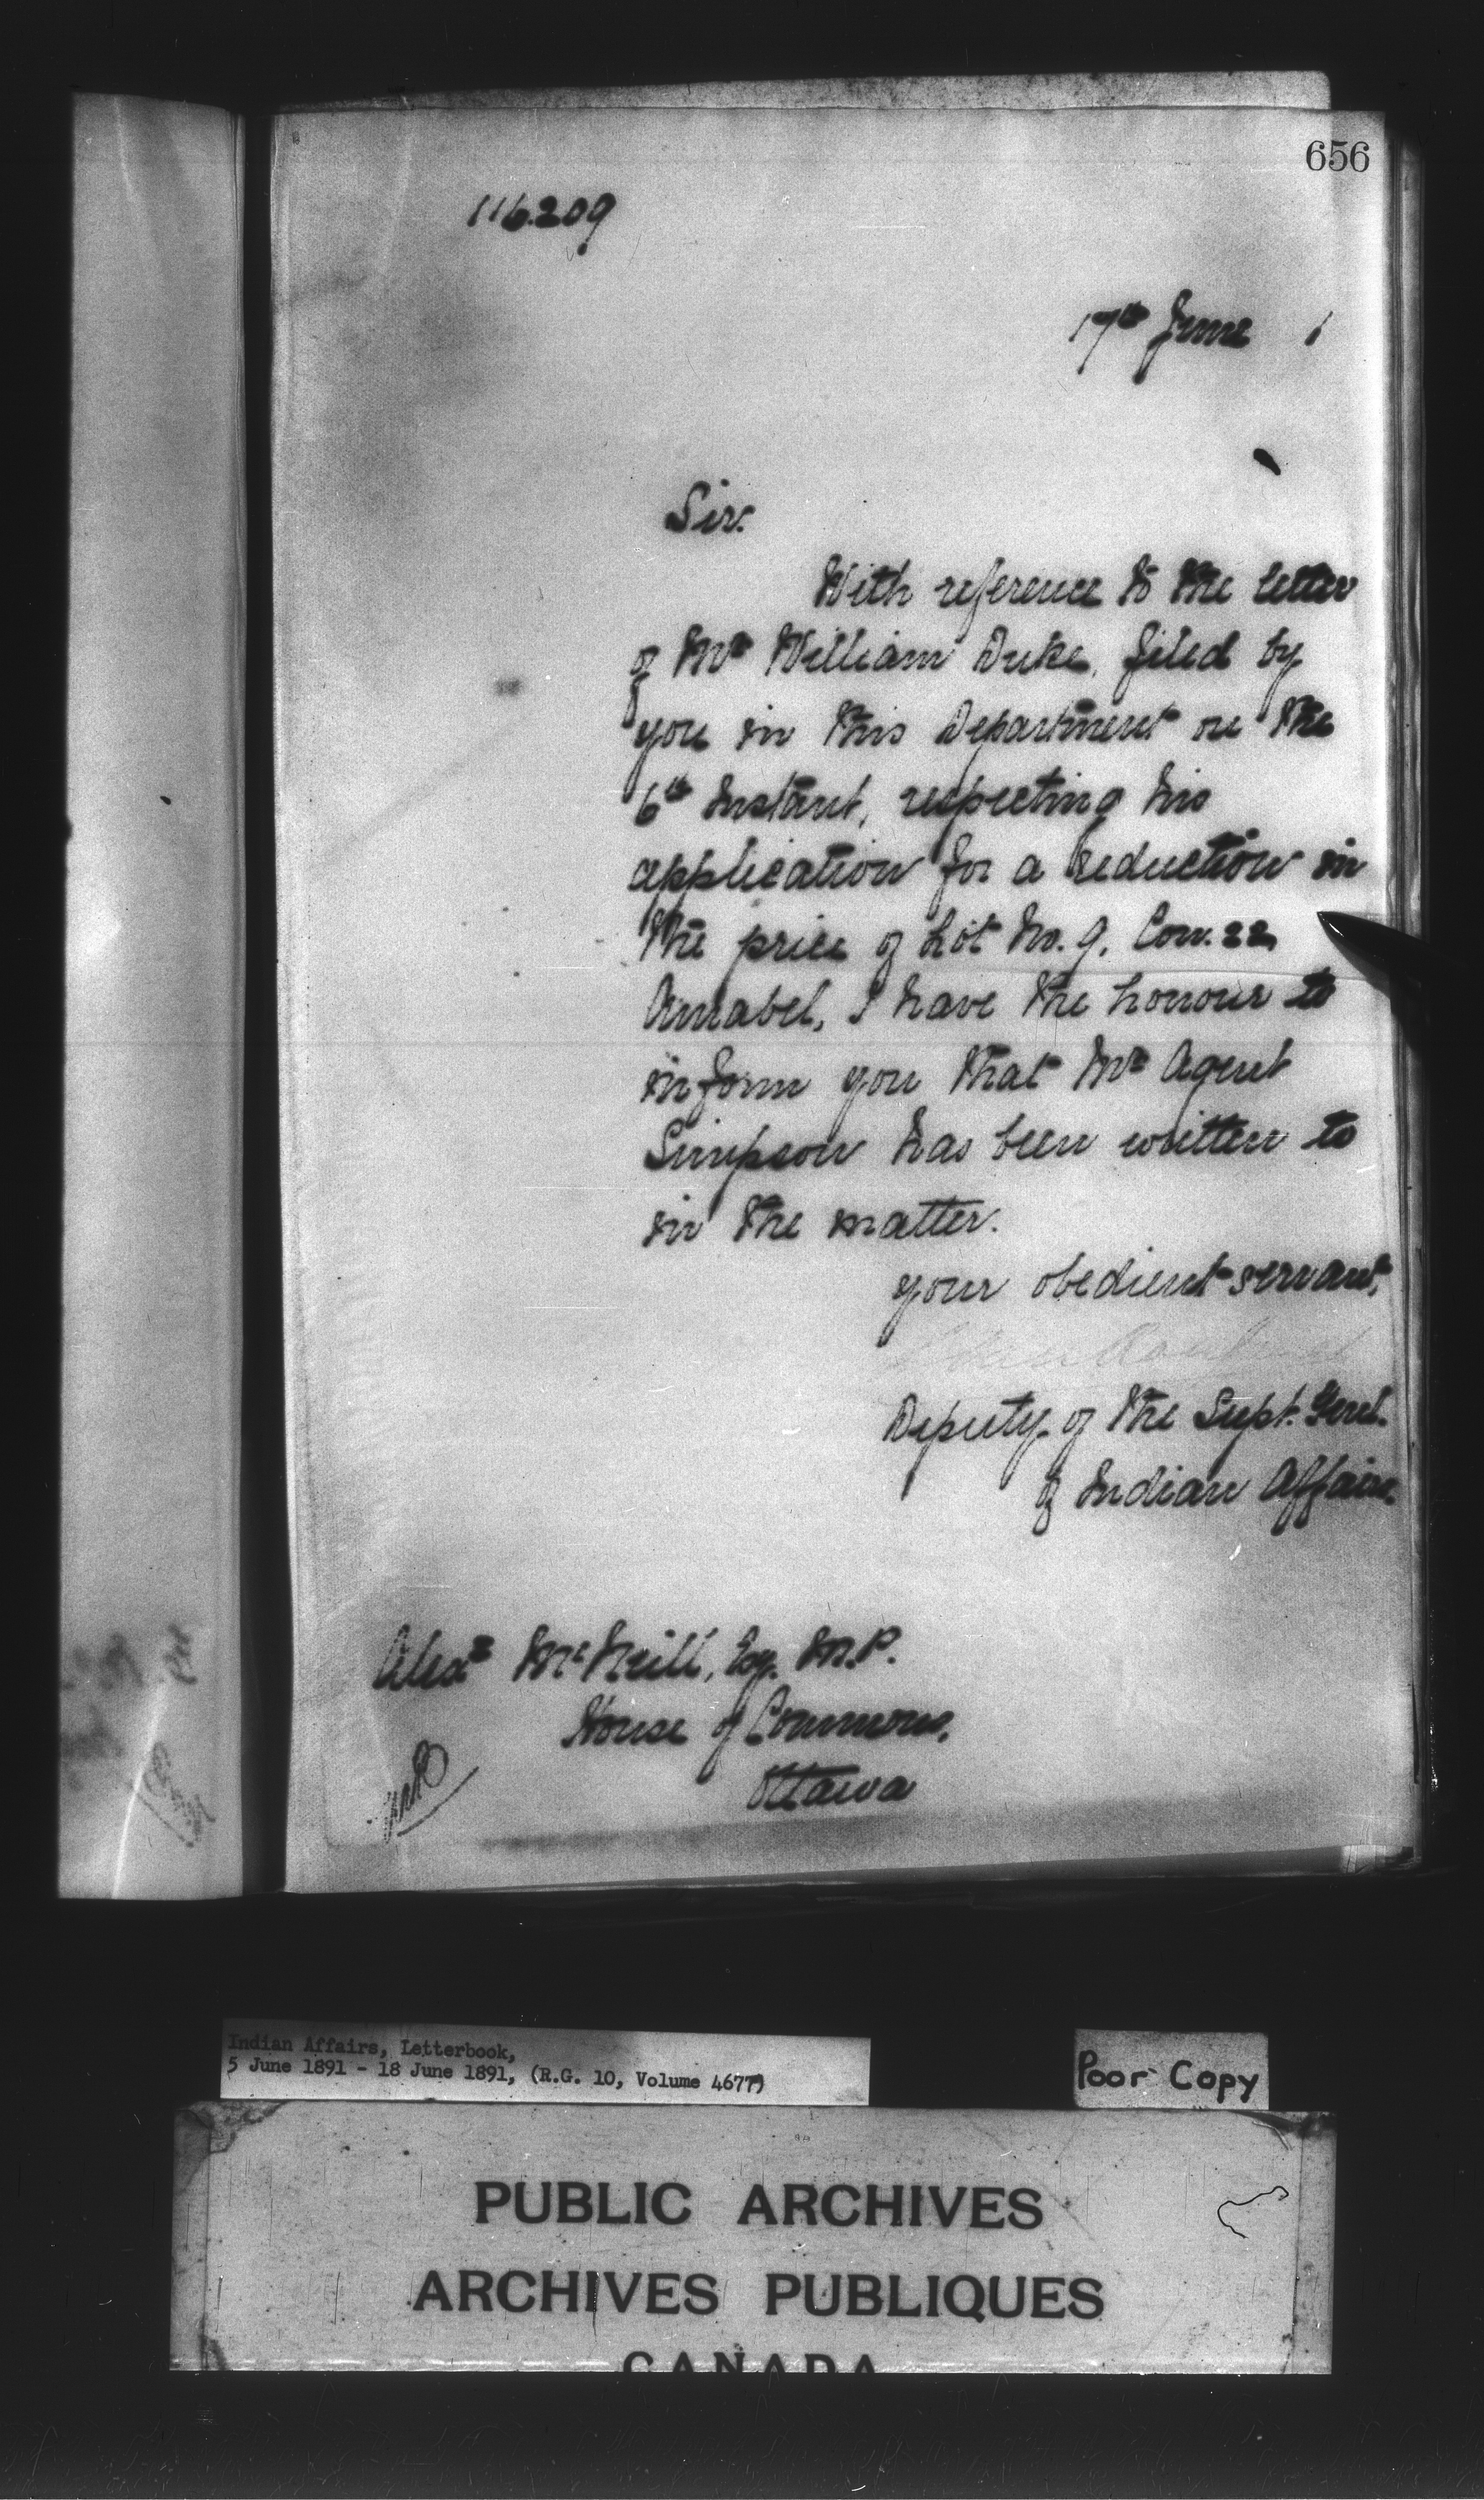 656
116.209
17th June 1
Sir.
With reference to the letter
of Mr William Duke, filed by
you in this Department on the
6th Instant, respecting his
application for a reduction in
the price of Lot No. 9, Con. 22,
Amabel, I have the honour to
inform you that Mr Agent
Simpson has been written to
in the matter.
your obedient servant,
Deputy of the Supt. Genl.
of Indian Affairs.
Alexr McNeill, Esq. M.P.
House of Commons,
Ottawa
Indian Affairs, Letterbook,
5 June 1891 - 18 June 1891, (R.G. 10, Volume 4677)
Poor Copy
PUBLIC ARCHIVES
ARCHIVES PUBLIQUES
CANADA